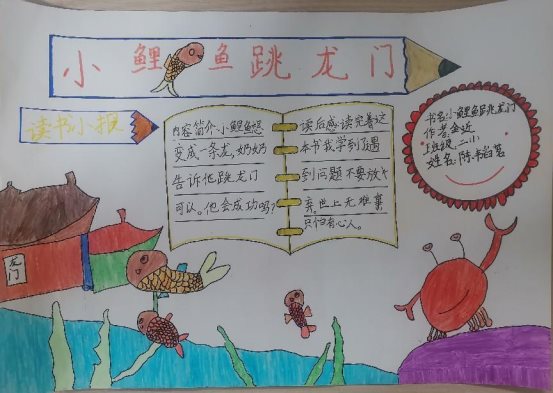 小鲤鱼跳龙门
读书小报
内容简介:小鲤鱼想
变成一条龙,奶奶
告诉他跳龙门
可以。他会成功吗?
读后感:读完着这
本书我学到了遇
到问题不要放
弃,世上无难事
只怕有心人。
书名:小鲤鱼跳龙门
作者:金近
班级:二小
姓名:陈
龙门